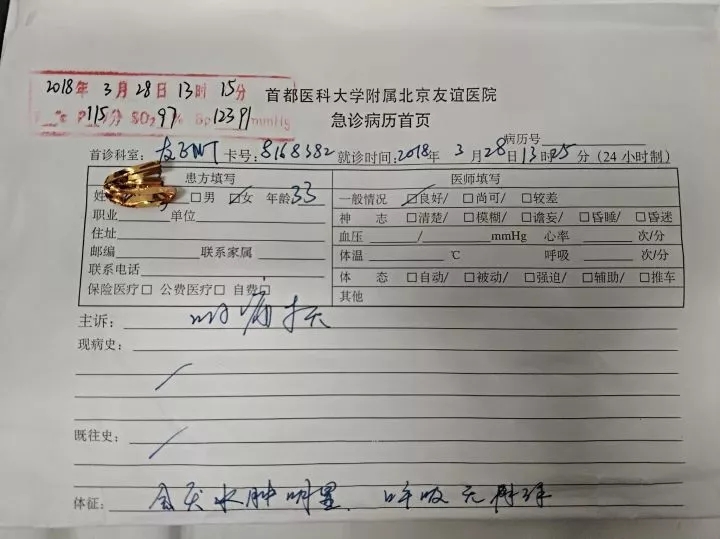 2018年 3月 28日 13时 15分
℃ P 115分 SO2 97% Bp 123 91 mmHg
首都医科大学附属北京友谊医院
急诊病历首页
病历号
首诊科室: 卡号: 8168382 就诊时间: 2018年 3月28日13时25分 (24小时制)
患方填写 医师填写
姓 □男 ☑女 年龄 33
职业 单位
住址
邮编 联系家属
联系电话
保险医疗□ 公费医疗□ 自费□
一般情况 ☑良好/ □尚可/ □较差
神 志 □清楚/ □模糊/ □谵妄/ □昏睡/ □昏迷
血压 / mmHg 心率 次/分
体温 ℃ 呼吸 次/分
体 态 □自动/ □被动/ □强迫/ □辅助/ □推车
其他
主诉: 咽痛 天
现病史:
既往史:
体征: 会厌水肿明显. 呼吸无